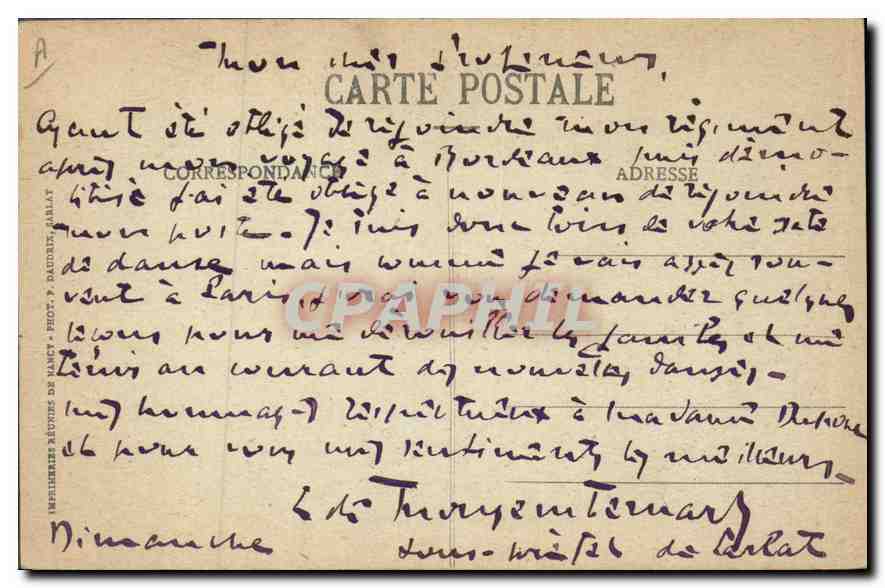 A
Mon cher Professeur,
CARTE POSTALE
Ayant été obligé de rejoindre mon régiment
après mon voyage à Bordeaux puis démo-
CORRESPONDANCE
ADRESSE
bilisé j'ai été obligé à nouveau de rejoindre
mon poste. Je suis donc loin de votre
de danse mais comme je vais assez sou-
vent à Paris, j'irai vous demander quelques
CPAPHIL
leçons pour me dérouiller les jambes et me
tenir au courant des nouvelles danses.
Mes hommages respectueux à Madame
et pour vous mes sentiments les meilleurs.
de
Dimanche
sous-préfet de Sarlat
IMPRIMERIES RÉUNIES DE NANCY - PHOT. P. DAUDRIX, SARLAT